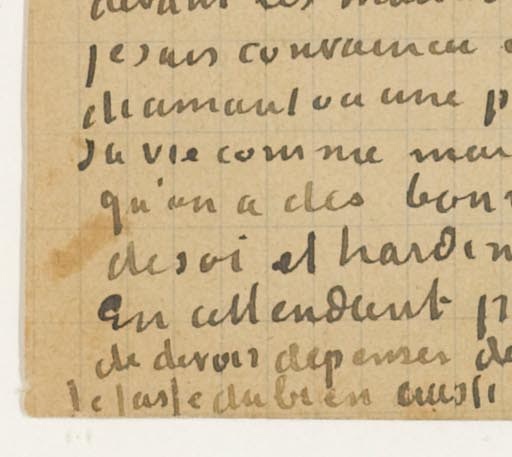 devant les
je suis convaincu
diamant ou une p
sa vie comme mar
qu'on a des bonn
de soi et hardim
En attendant p
de devoir depenser de
le fasse du bien aussi